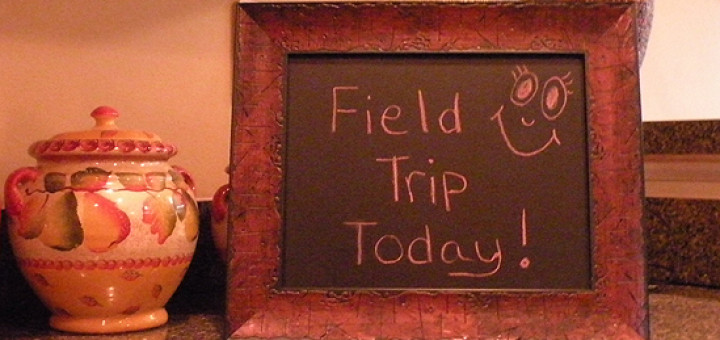 Field
Trip
Today!